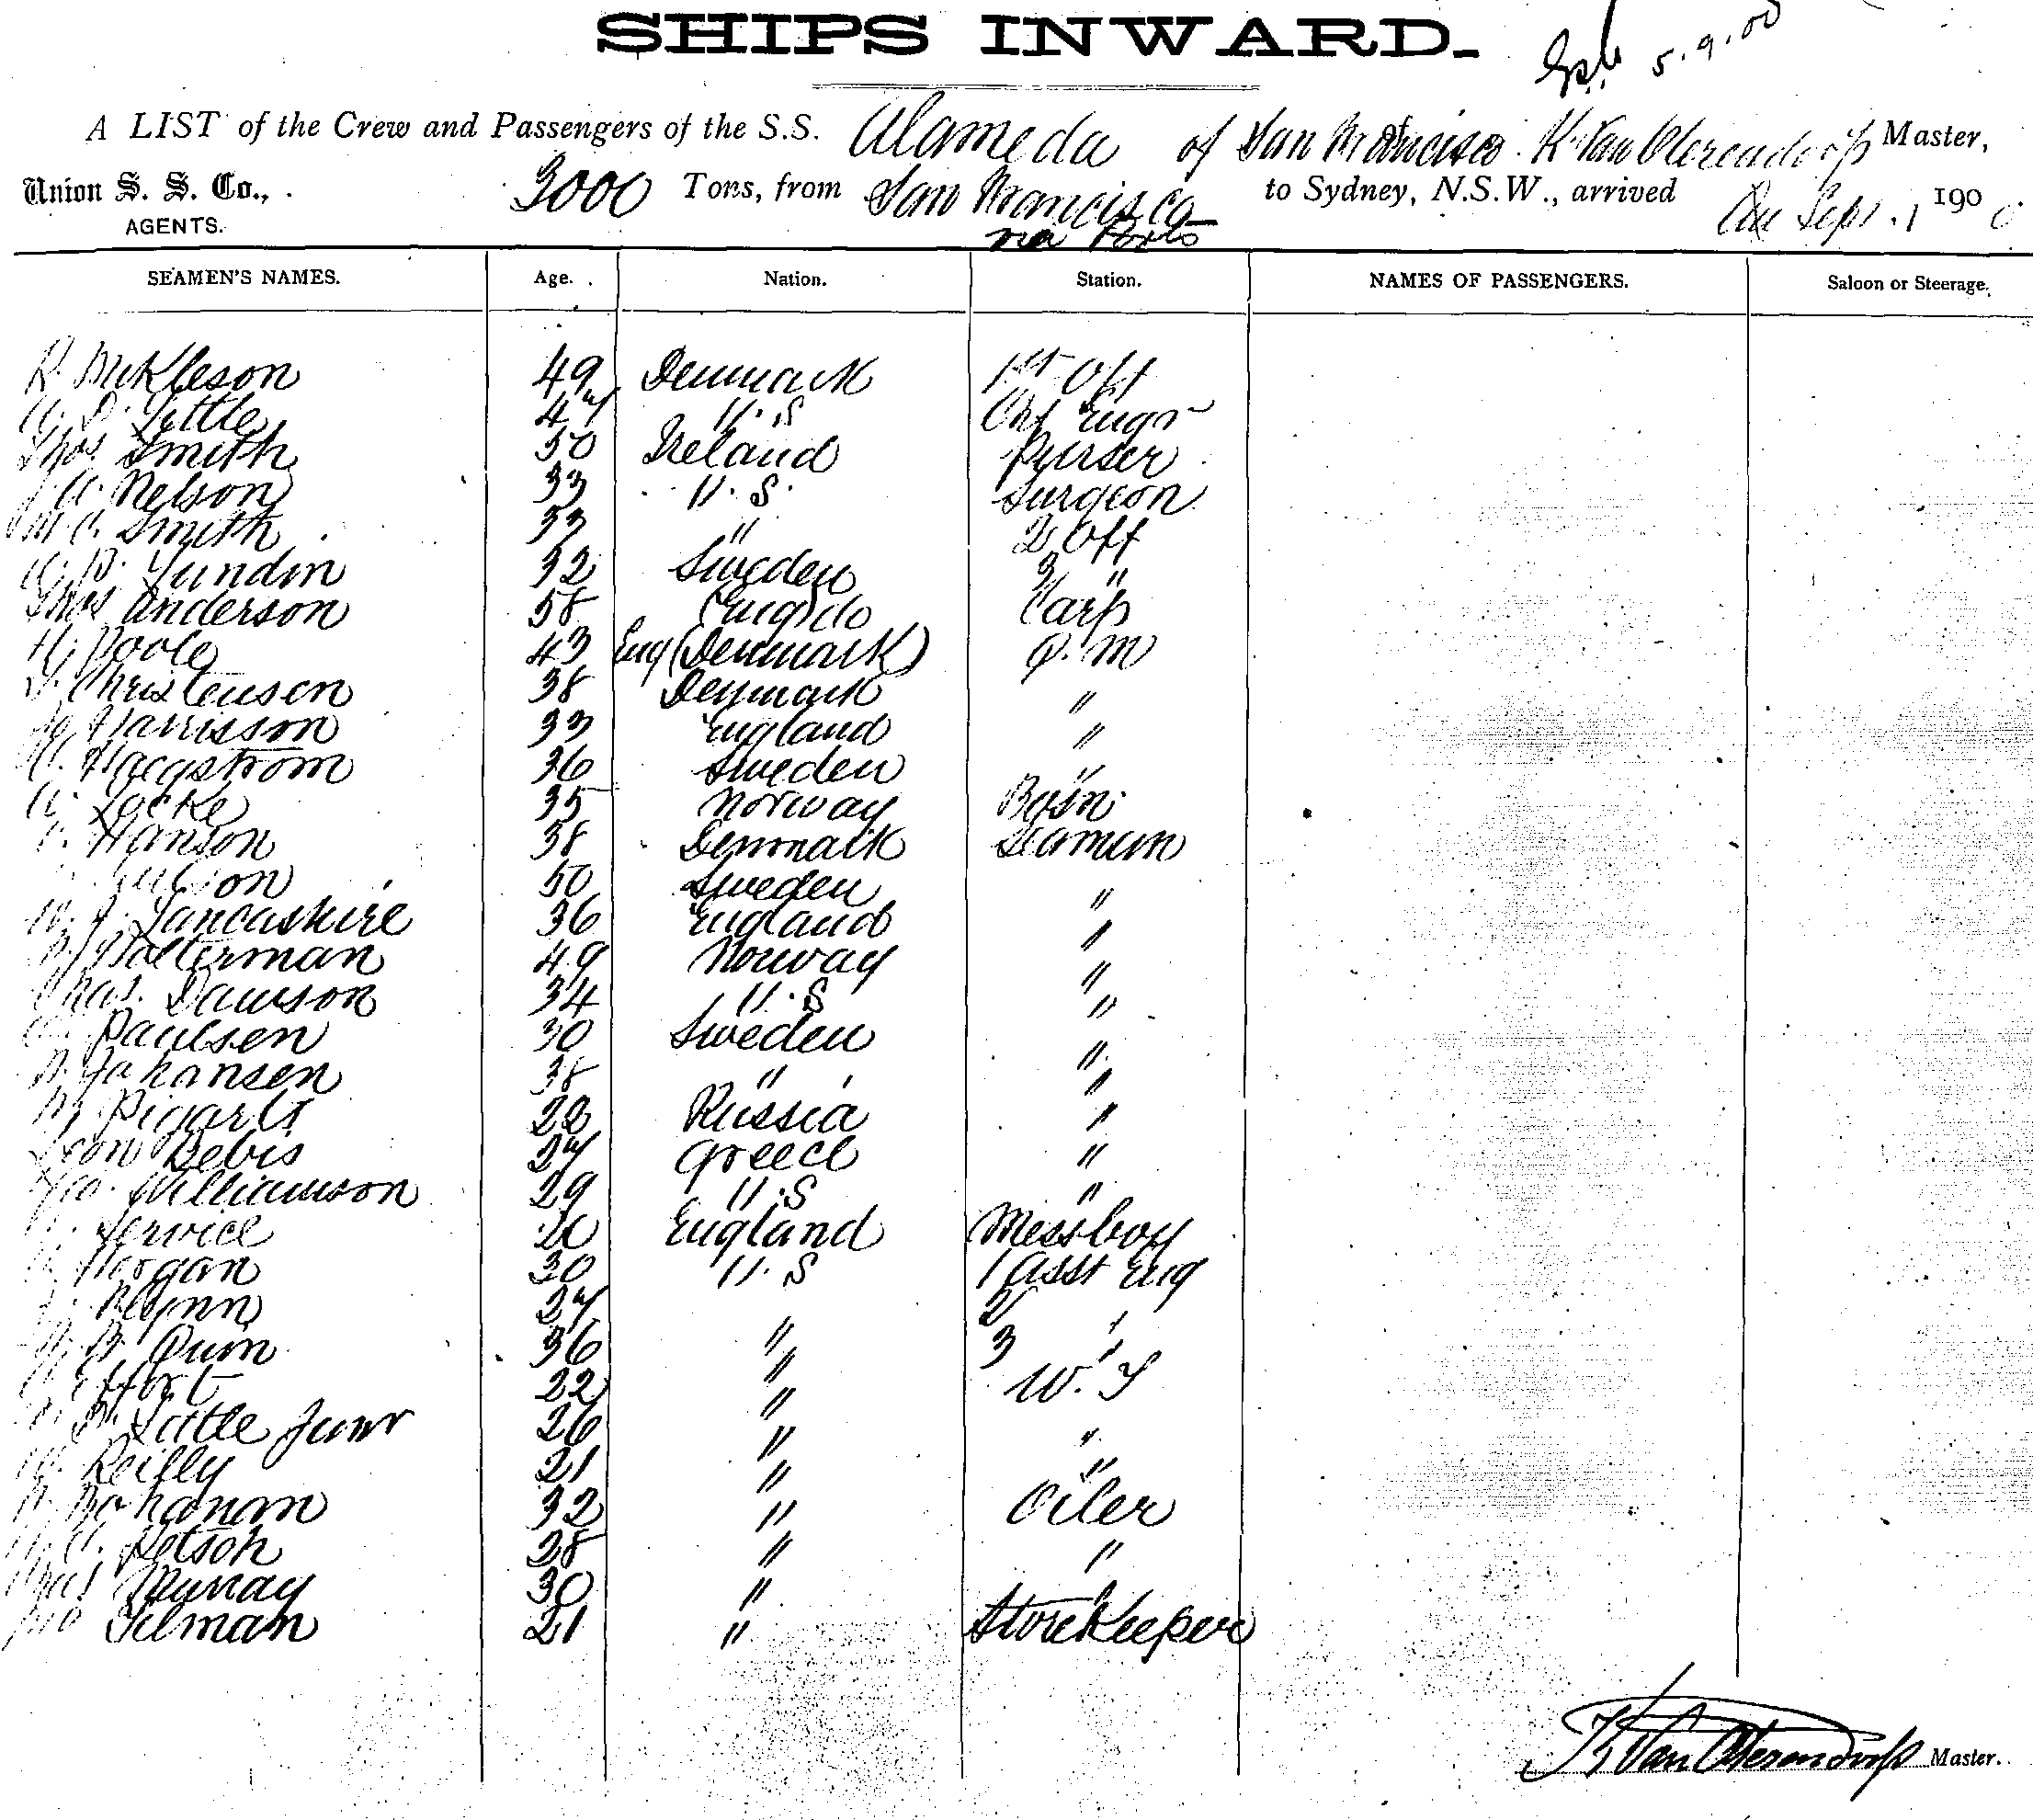 SHIPS INWARD.
5.9.00
A LIST of the Crew and Passengers of the S.S. Alameda of San Francisco K. Van Oterendorp Master,
Union S. S. Co., 3000 Tons, from San Francisco to Sydney, N.S.W., arrived Sept. 1 1900
AGENTS. via Ports
SEAMEN'S NAMES. Age. Nation. Station. NAMES OF PASSENGERS. Saloon or Steerage.
49 Denmark 1st Off
Little 47 U.S Chf Engr
Thos Smith 50 Ireland Purser
Nelson 33 U.S. Surgeon
Smith 33 " 2 Off
Lundin 32 Sweden 3 "
Anderson 58 (Eng) do Carp
H. Poole 43 Eng (Denmark) Q.M
Christensen 38 Denmark "
Harrisson 33 England "
Haegstrom 36 Sweden "
Locke 35 Norway Bosn
Hanson 38 Denmark Seamen
50 Sweden "
Lancashire 36 England "
Wolterman 49 Norway "
Chas. Dawson 34 U.S "
Paulsen 30 Sweden "
Johansen 38 " "
28 Russia "
Leon Debis 27 Greece "
Geo. Williamson 29 U.S "
Service 20 England Messboy
Horgan 30 U.S 1 Asst Eng
Flynn 27 2 "
Quin 36 " 3 "
22 " W.T
Little Junr 26 " "
Reilly 21 " "
Bohanan 32 " Oiler
28 " "
Murray 30 " "
Tilman 21 " Storekeeper
K Van Oterendorp Master.